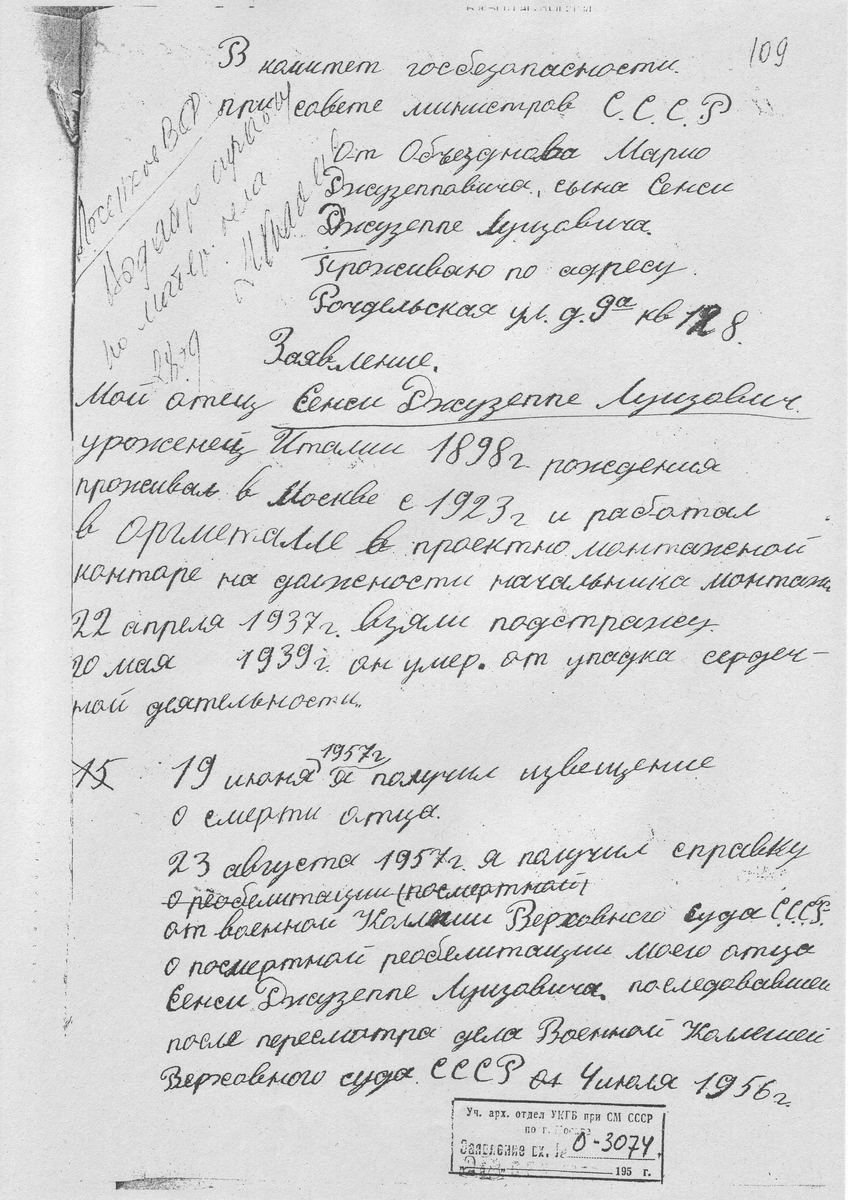 109
В комитет госбезопасности.
при совете министров С.С.С.Р
от Объезднова Марио
Джузепповича, сына Сенси
Джузеппе Луизовича.
Проживаю по адресу
Рочдельская ул. д. 9а кв 128.
Заявление.
Мой отец Сенси Джузеппе Луизович.
уроженец Италии 1898г рождения
проживал в Москве с 1923г и работал
в Оргметалле в проектно монтажной
канторе на должности начальника монтаж
22 апреля 1937г. взяли подстражу.
20 мая 1939г. он умер. от упадка сердеч-
ной деятельности.
15 19 июня 1957г я получил извещение
о смерти отца.
23 августа 1957г. я получил справку
о реобелитации (посмертной)
от военной Коллегии Верховного суда С.С.С.Р.
о посмертной реобелитации моего отца
Сенси Джузеппе Луизовича. последовавшей
после пересмотра дела Военной Коллегией
Верховного суда. СССР от 4 июля 1956г.
Уч. арх. отдел УКГБ при СМ СССР
по г. Москве
Заявление вх. № 0-3074
195 г.